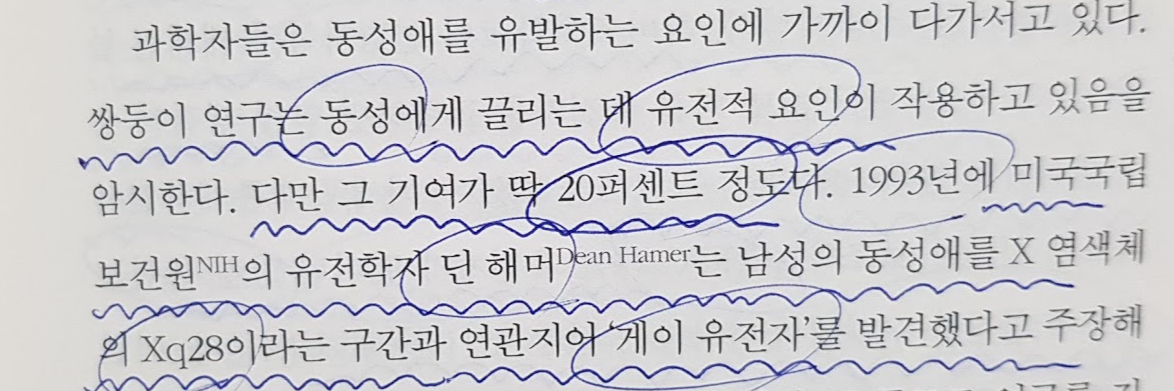 과학자들은 동성애를 유발하는 요인에 가까이 다가서고 있다.
쌍둥이 연구는 동성에게 끌리는 데 유전적 요인이 작용하고 있음을
암시한다. 다만 그 기여가 딱 20퍼센트 정도다. 1993년에 미국국립
보건원NIH의 유전학자 딘 해머Dean Hamer는 남성의 동성애를 X 염색체
의 Xq28이라는 구간과 연관지어 '게이 유전자'를 발견했다고 주장해